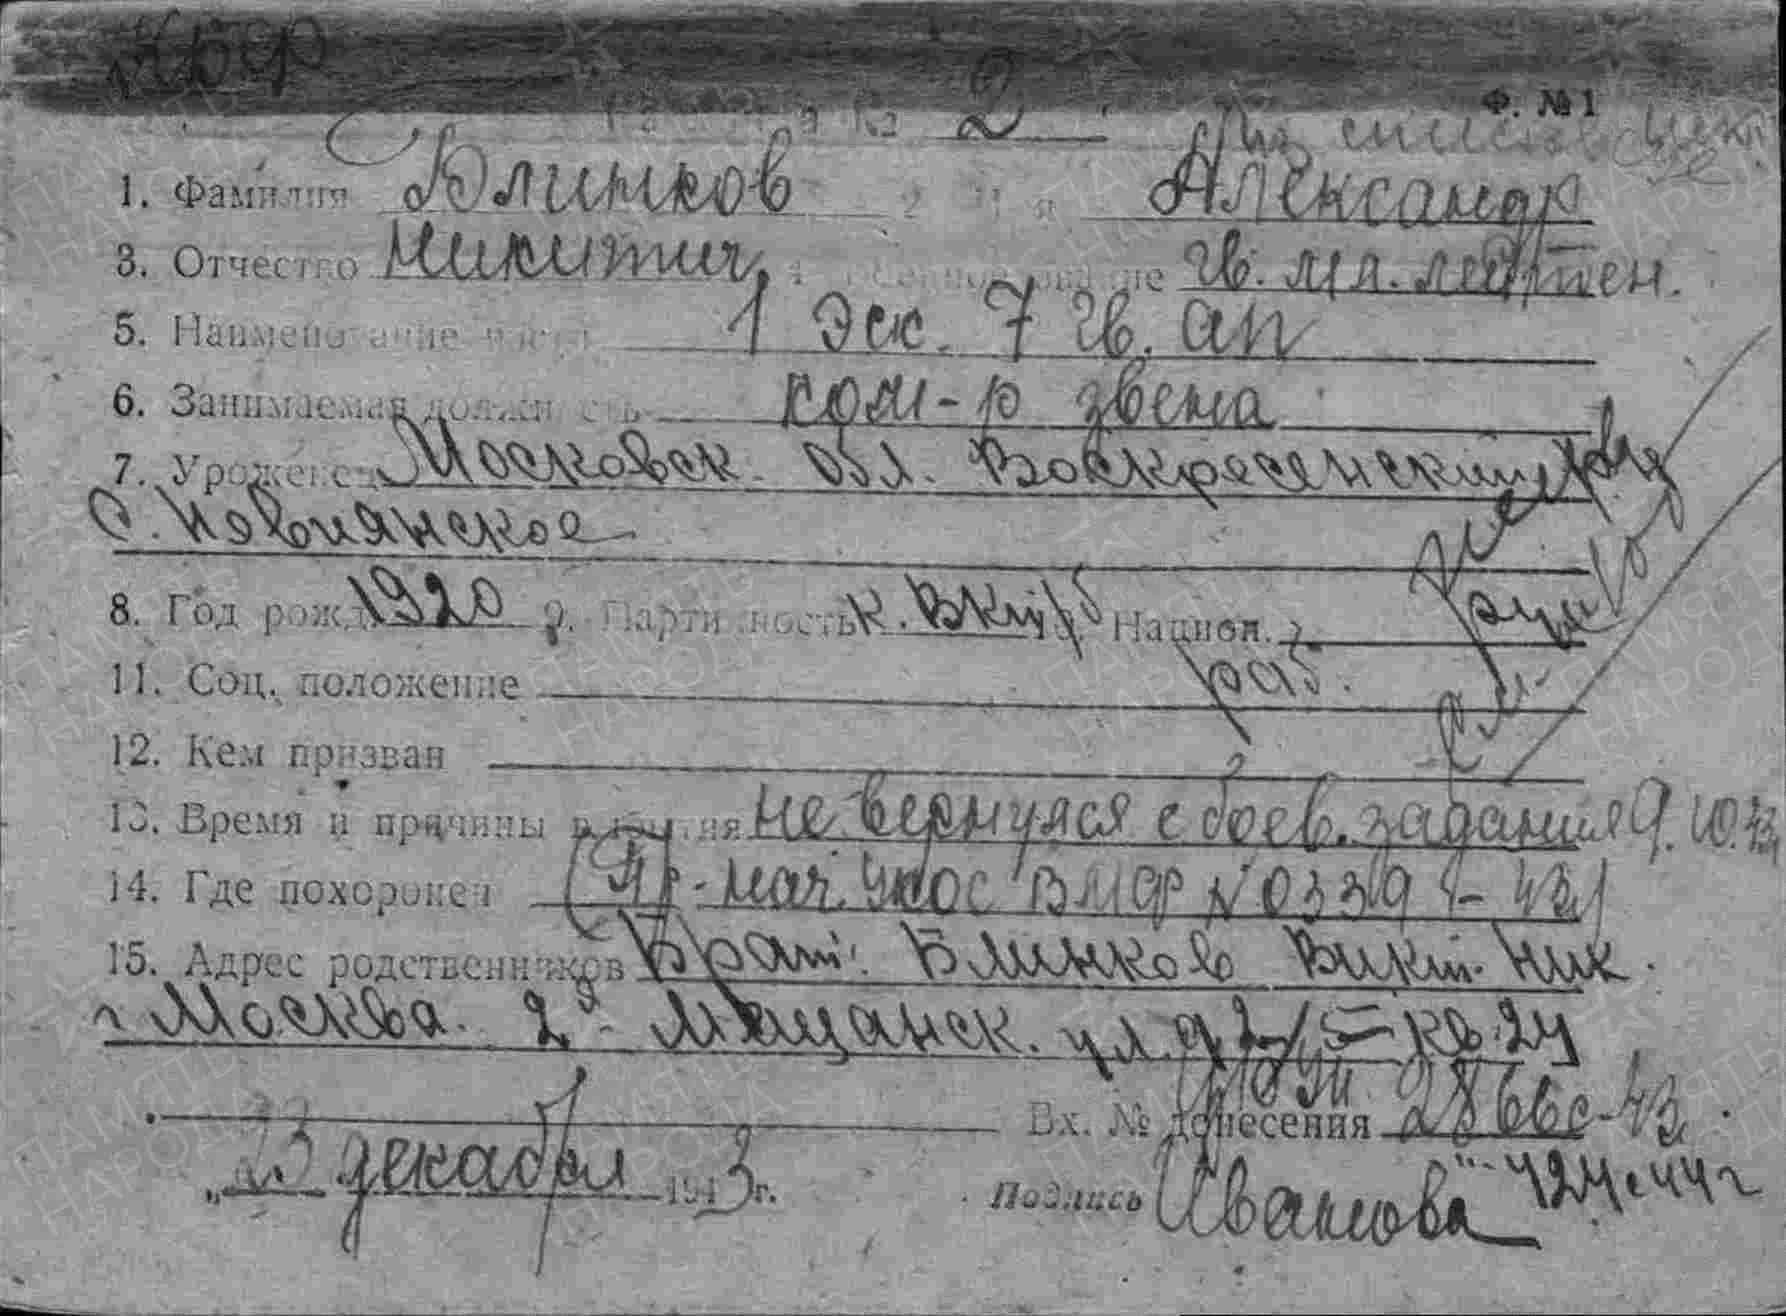 Ф. № 1
2
Из списков искл.
1. Фамилия Блинков 2. Имя Александр
3. Отчество Никитич 4. Военное звание гв. мл. лейтен.
5. Наименование части 1 Эск. 7 гв. ап
6. Занимаемая должность ком-р звена
7. Уроженец Московск. обл. Воскресенский
с. Новлянское
8. Год рожд. 1920 9. Партийность к. ВКП/б 10. Национ.
11. Соц. положение раб.
12. Кем призван
13. Время и причины выбытия не вернулся с боев. задания 9.10.43
14. Где похоронен (Пр. нач. УКОС ВМФ № 0339 - 43)
15. Адрес родственников Брат: Блинков Викт. Ник.
г Москва. 2я - Мещанск. ул. д 2/5 кв. 24
Вх. № донесения 2866с-43
„23 декабря 1943г. Подпись Иванова "- 424с44г